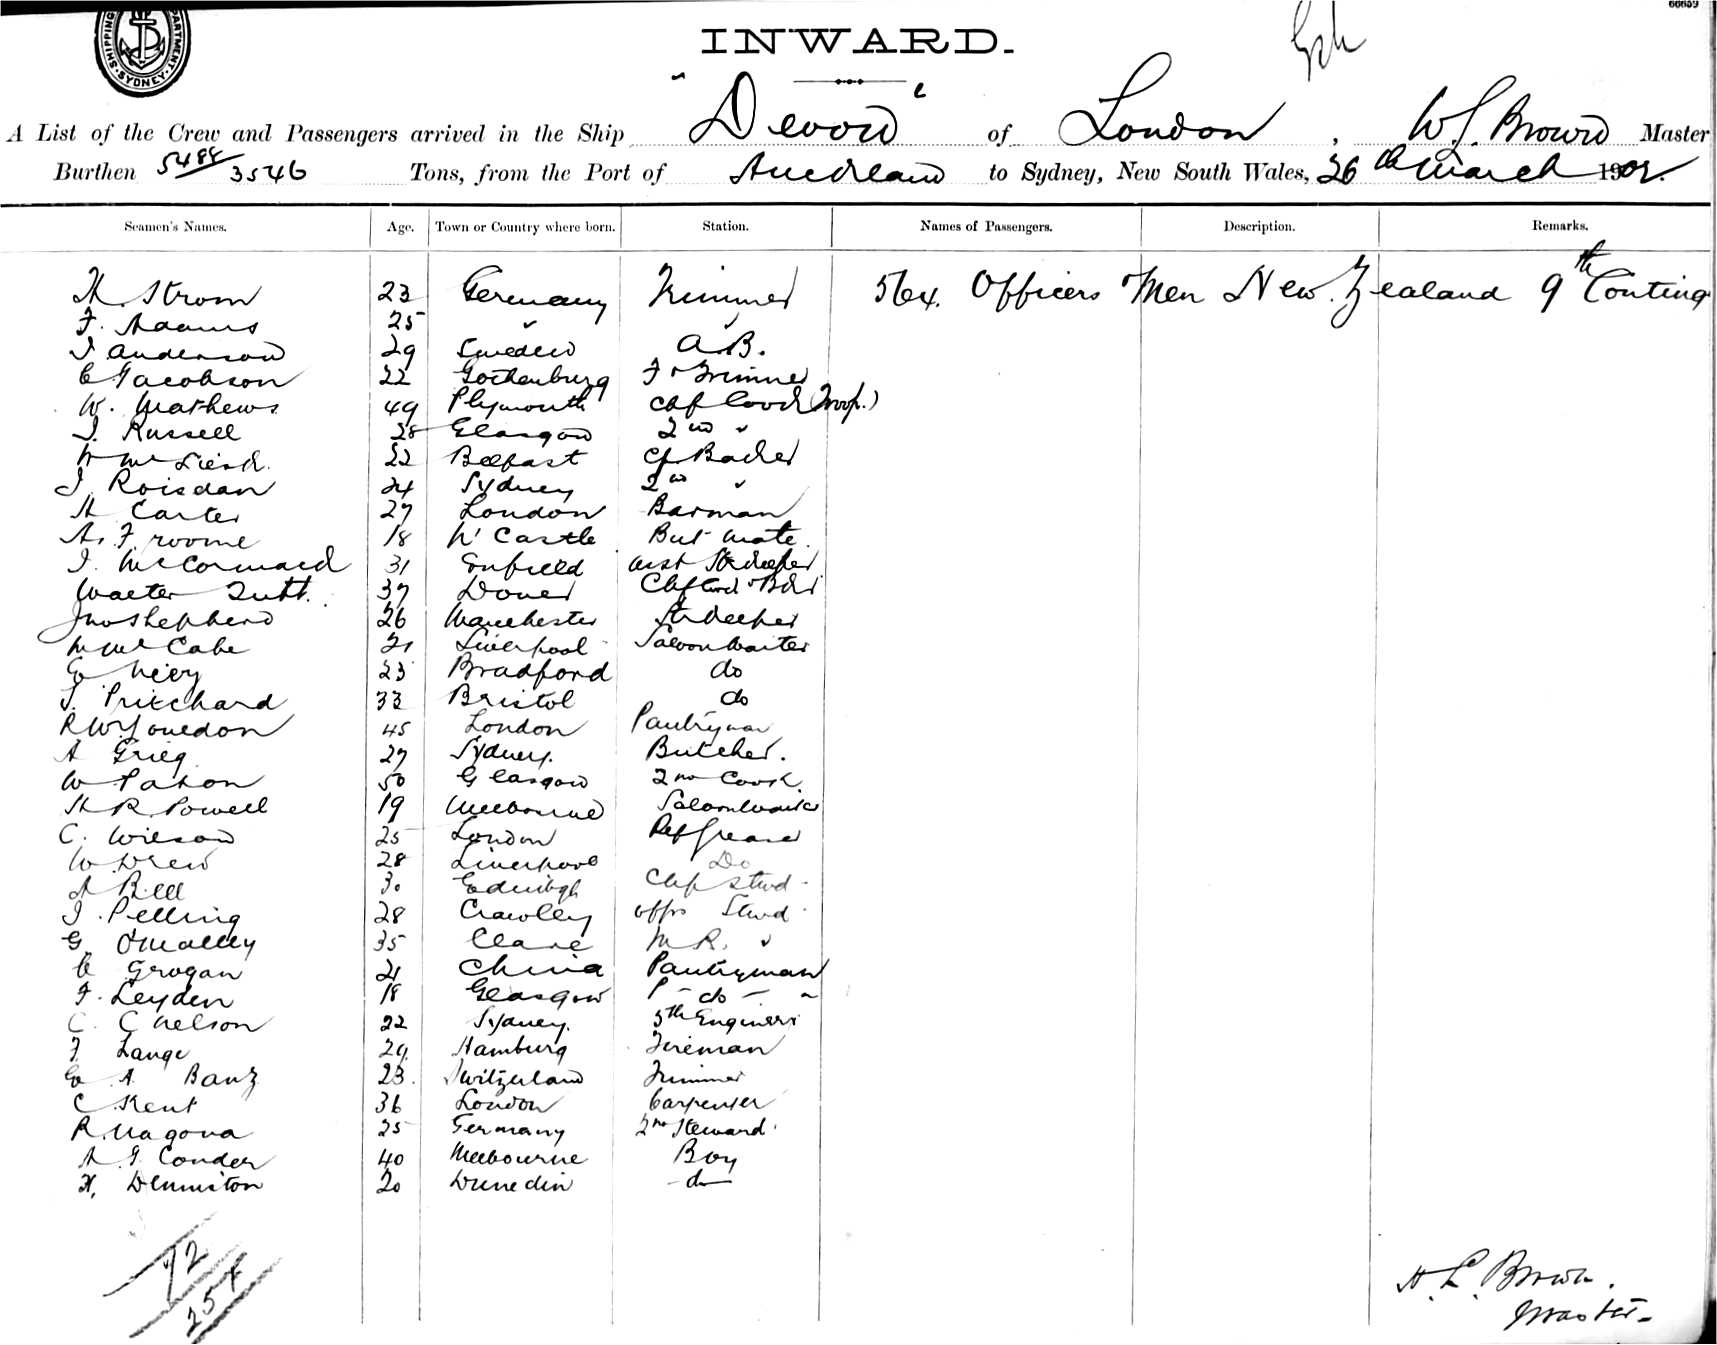 66659
SHIPPING DEPARTMENT SYDNEY
INWARD.
A List of the Crew and Passengers arrived in the Ship "Devon" of London, W L Brown Master
Burthen 5488/3546 Tons, from the Port of Auckland to Sydney, New South Wales, 26th March 1902.
Seamen's Names. Age. Town or Country where born. Station. Names of Passengers. Description. Remarks.
H. Strom 23 Germany Trimmer 564. Officers & Men New Zealand 9th Conting
F. Adams 25 " "
J Anderson 29 Sweden A.B.
C Jacobson 22 Gothenburg F & Trimmer
W. Mathews 49 Plymouth Chf Cook (Troop.)
J. Russell 28 Glasgow 2nd "
22 Belfast Cf Baker
J Roisdan 24 Sydney 2nd "
H Carter 27 London Barman
A. Froome 18 N' Castle But mate
J. McCormack 31 Enfield asst Strkeeper
Walter Tutt. 37 Dover
Jno Shepherd 26 Manchester Strkeeper
M McCabe 21 Liverpool Saloon Waiter
23 Bradford do
J. Pritchard 33 Bristol do
R W 45 London Pantryman
A Grieg 27 Sydney. Butcher.
W Paton 50 Glasgow 2nd Cook.
H R Powell 19 Melbourne Saloon Waiter
C. Wilson 25 London Ref Greaser
W Drew 28 Liverpool Do
A Bell 30 Edinbgh Chf Stwd.
J. Pelling 28 Crawley Offrs Stwd.
G O'Malley 35 Clare M R. "
C Grogan 21 China Pantryman
F. Leyden 18 Glasgow P - do - "
C. C Nelson 22 Sydney. 5th Engineer
F Lange 29 Hamburg Fireman
E A Banz 23. Switzerland Trimmer
C Kent 36 London Carpenter
R. Nagova 25 Germany 2nd Steward.
A. J Conder 40 Melbourne Boy
H. Denniston 20 Dunedin do
72
254
H. L. Brown.
Master.